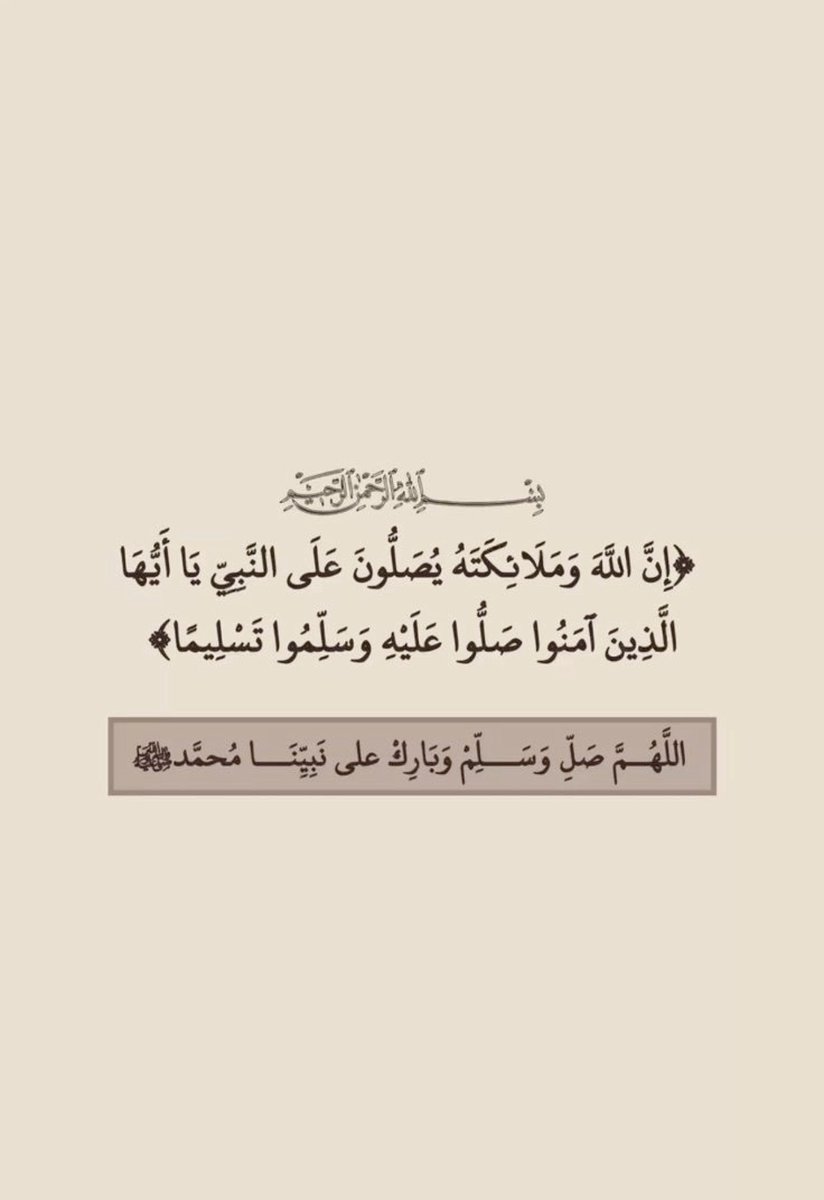 بِسْمِ اللَّهِ الرَّحْمَٰنِ الرَّحِيمِ
﴿إِنَّ اللَّهَ وَمَلَائِكَتَهُ يُصَلُّونَ عَلَى النَّبِيِّ يَا أَيُّهَا
الَّذِينَ آمَنُوا صَلُّوا عَلَيْهِ وَسَلِّمُوا تَسْلِيمًا﴾
اللَّهُــمَّ صَلِّ وَسَــــلِّمْ وَبَارِكْ على نَبِيِّنَـــــا مُحمَّد ﷺ